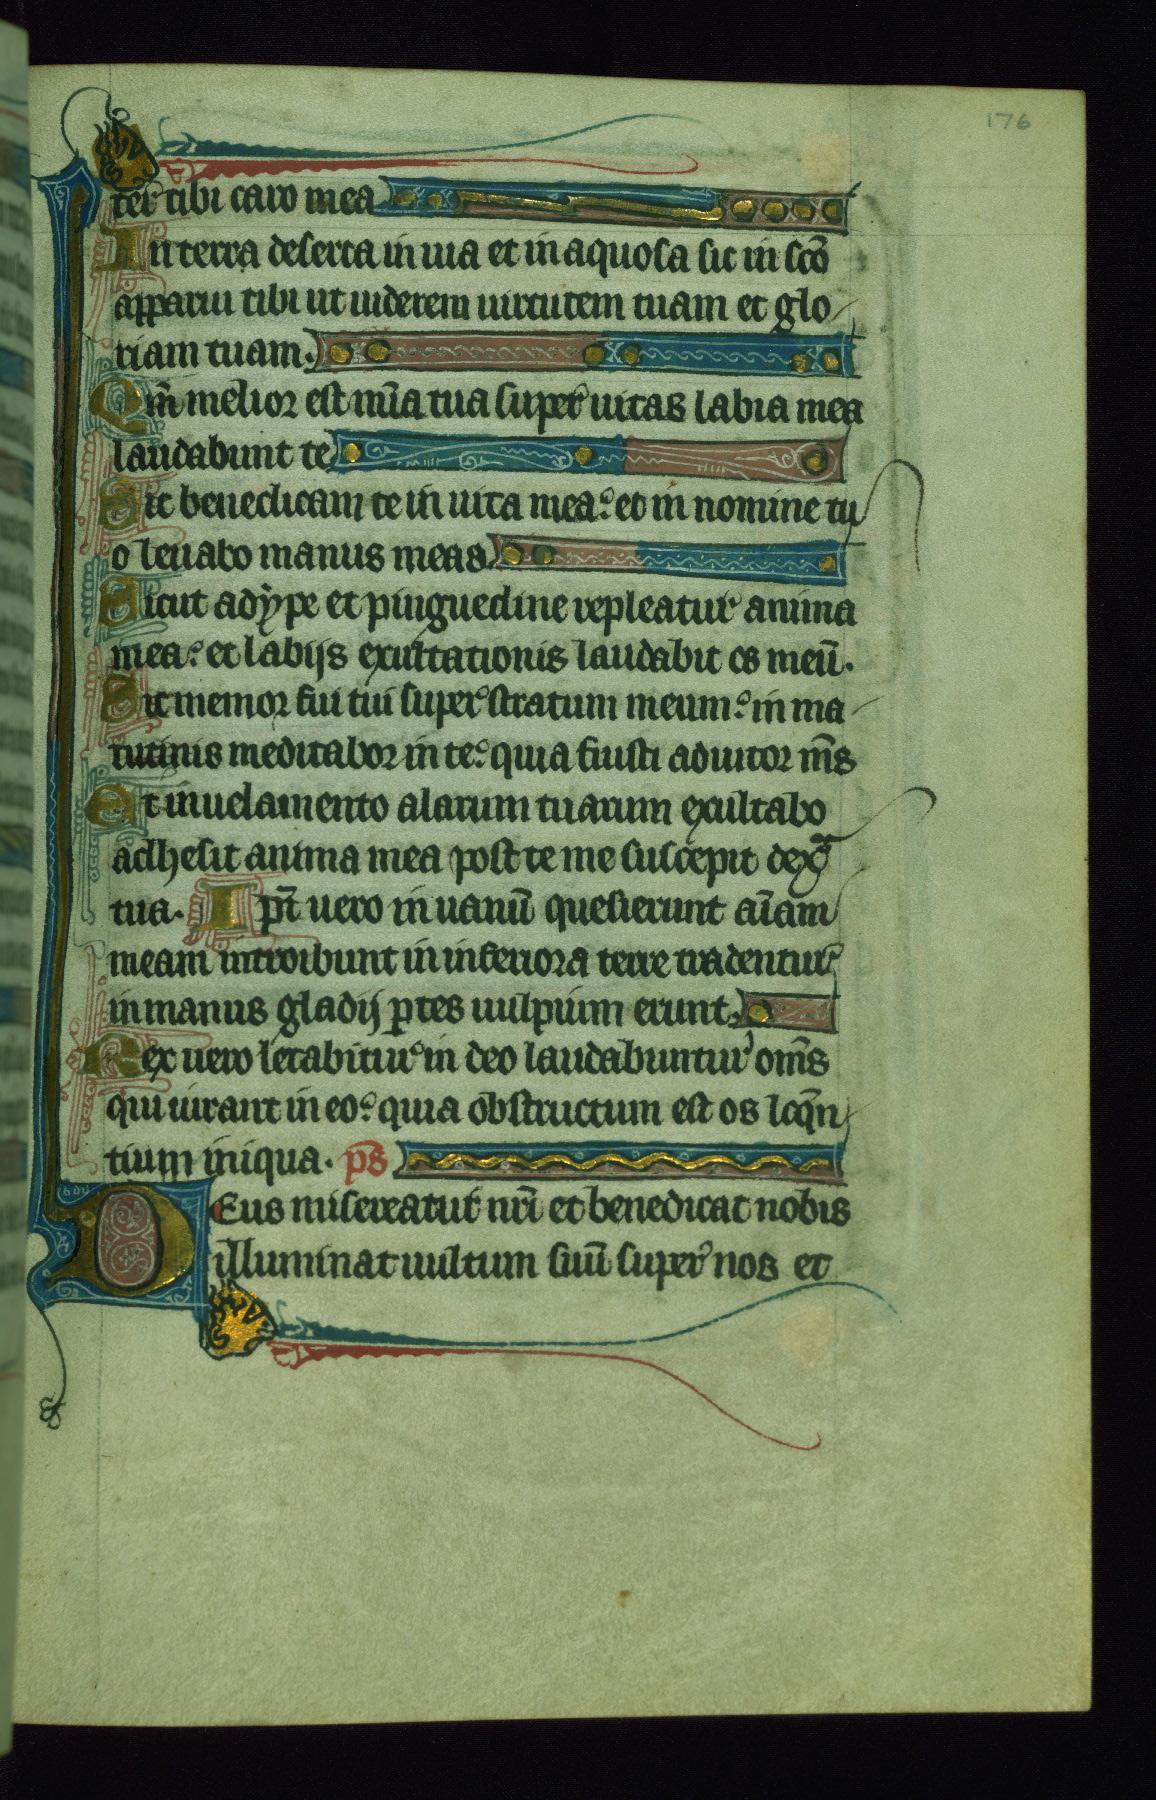 176
ter tibi caro mea
In terra deserta in uia et in aquosa sic in sc̄o
apparui tibi ut uiderem uirtutem tuam et glo
riam tuam.
Qm̄ melior est mīa tua super uitas labia mea
laudabunt te
Sic benedicam te in uita mea: et in nomine tu
o leuabo manus meas
Sicut adype et pinguedine repleatur anima
mea: et labijs exultationis laudabit os meū.
Sic memor fui tui super stratum meum: in ma
tutinis meditabor in te: quia fuisti adiutor m̄s
Et in uelamento alarum tuarum exultabo
adhesit anima mea post te me suscepit dext̄a
tua. Ip̄i uero in uanū quesierunt aīam
meam introibunt in inferiora terre tradentur
in manus gladij ꝑtes uulpium erunt.
Rex uero letabitur in deo laudabuntur om̄s
qui iurant in eo: quia obstructum est os loq̄n
tium iniqua. p̄s
Deus misereatur nr̄i et benedicat nobis
illuminat uultum suū super nos et